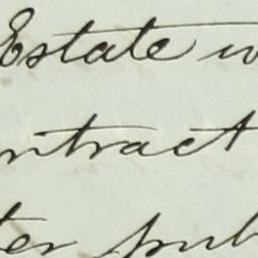 Estate w
ntract
ter pub